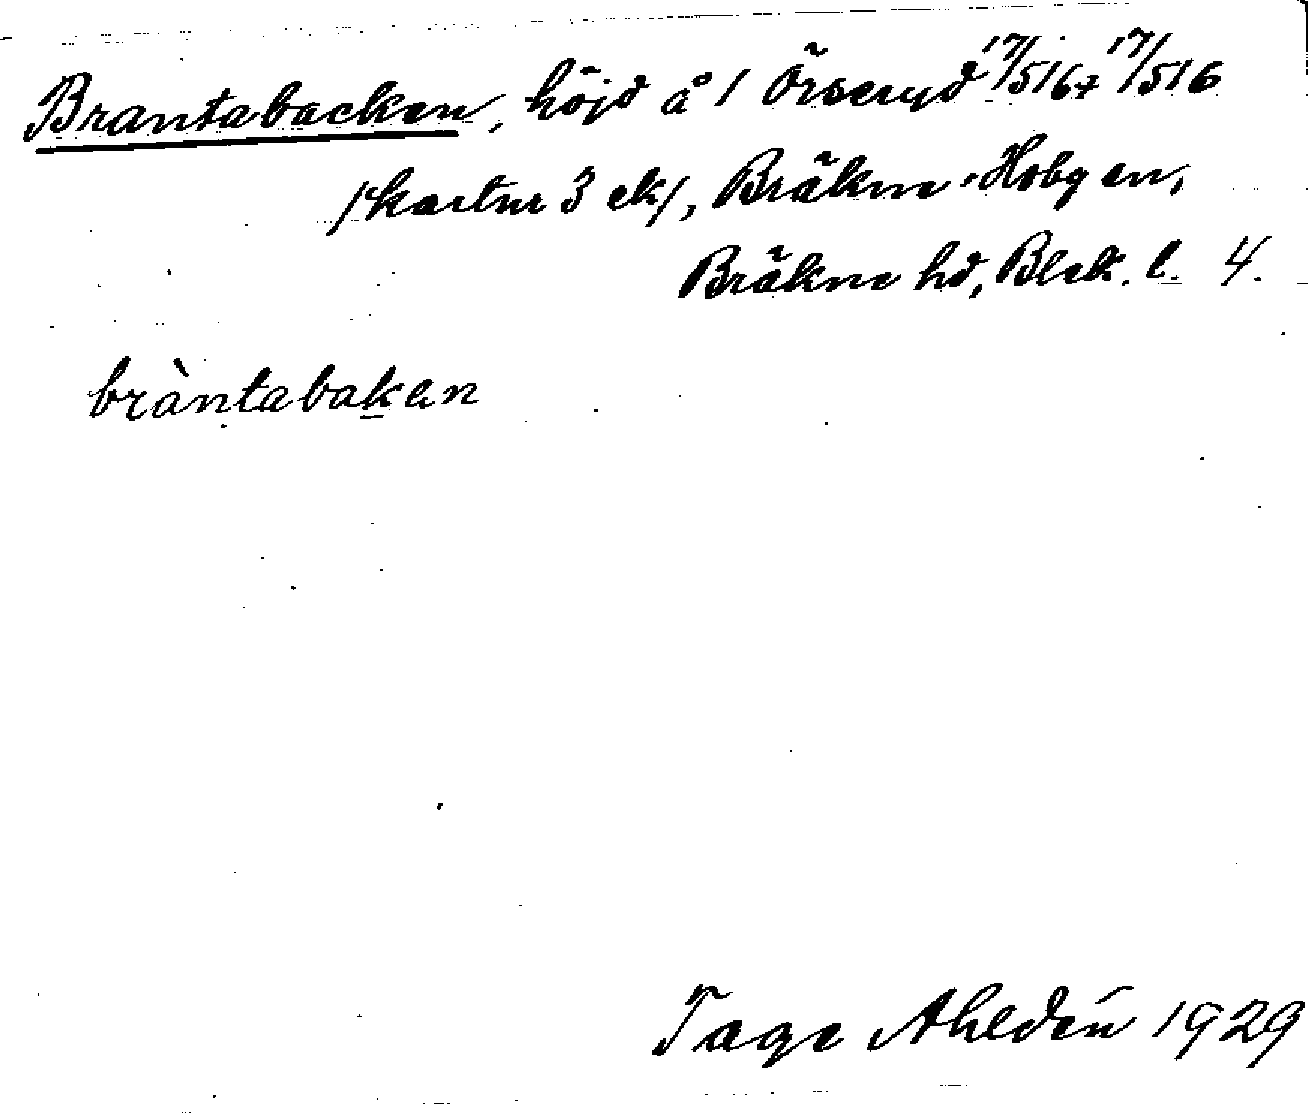 Brantabacken, höjd å 1 Örseryd 17/516 + 17/516
/kartnr 3 ek/, Bräkne-Hoby sn,
Bräkne hd, Blek. l. 4.
bràntabakan
Tage Ahldén 1929